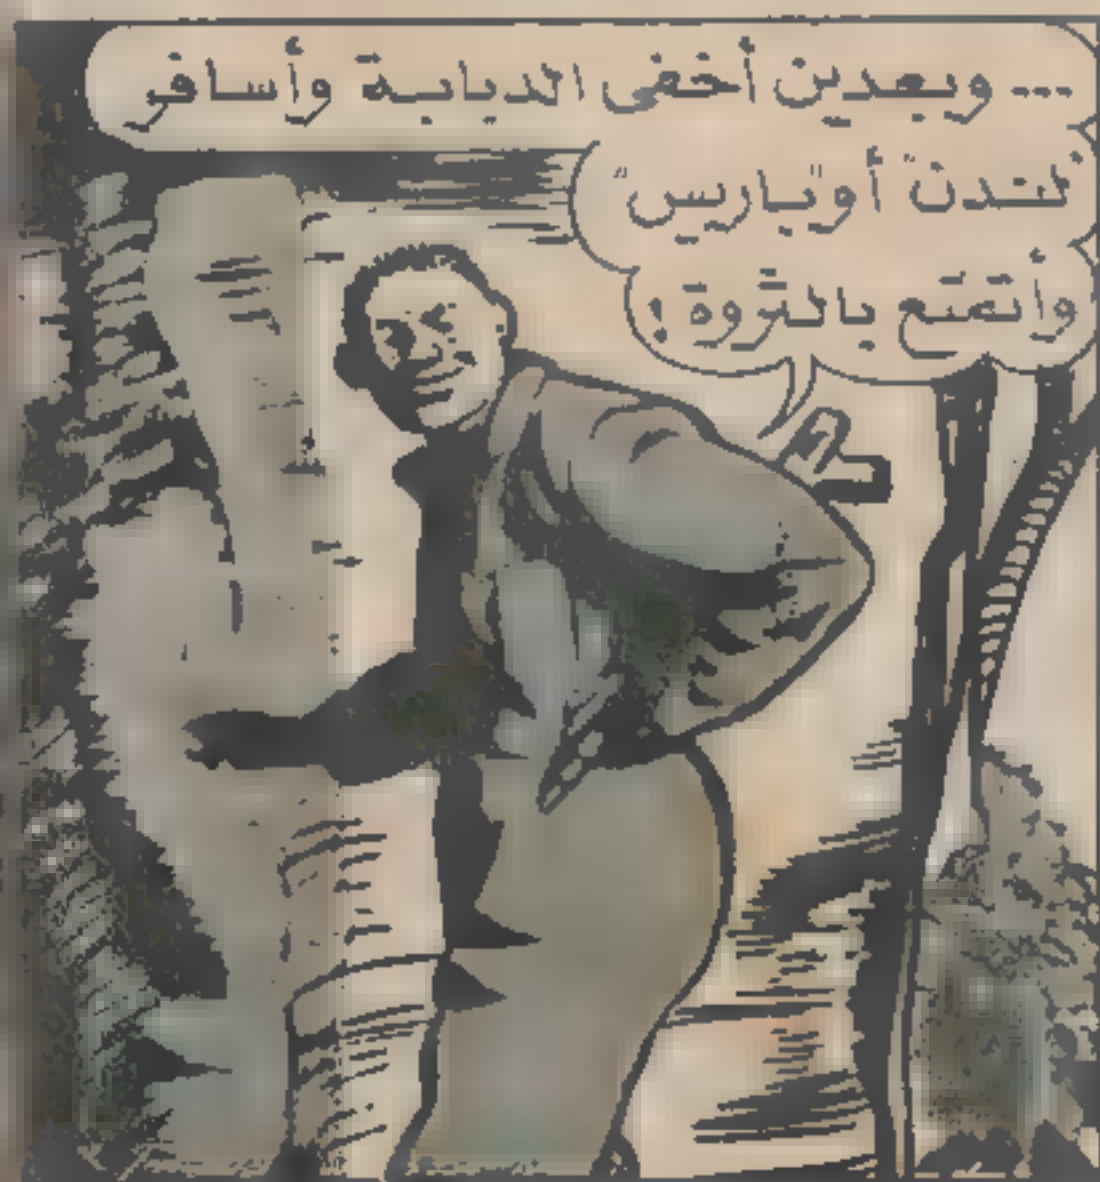 ... وبعدين أخفى الدبابة وأسافر
"لندن" أو "باريس"
وأتمتع بالثروة !